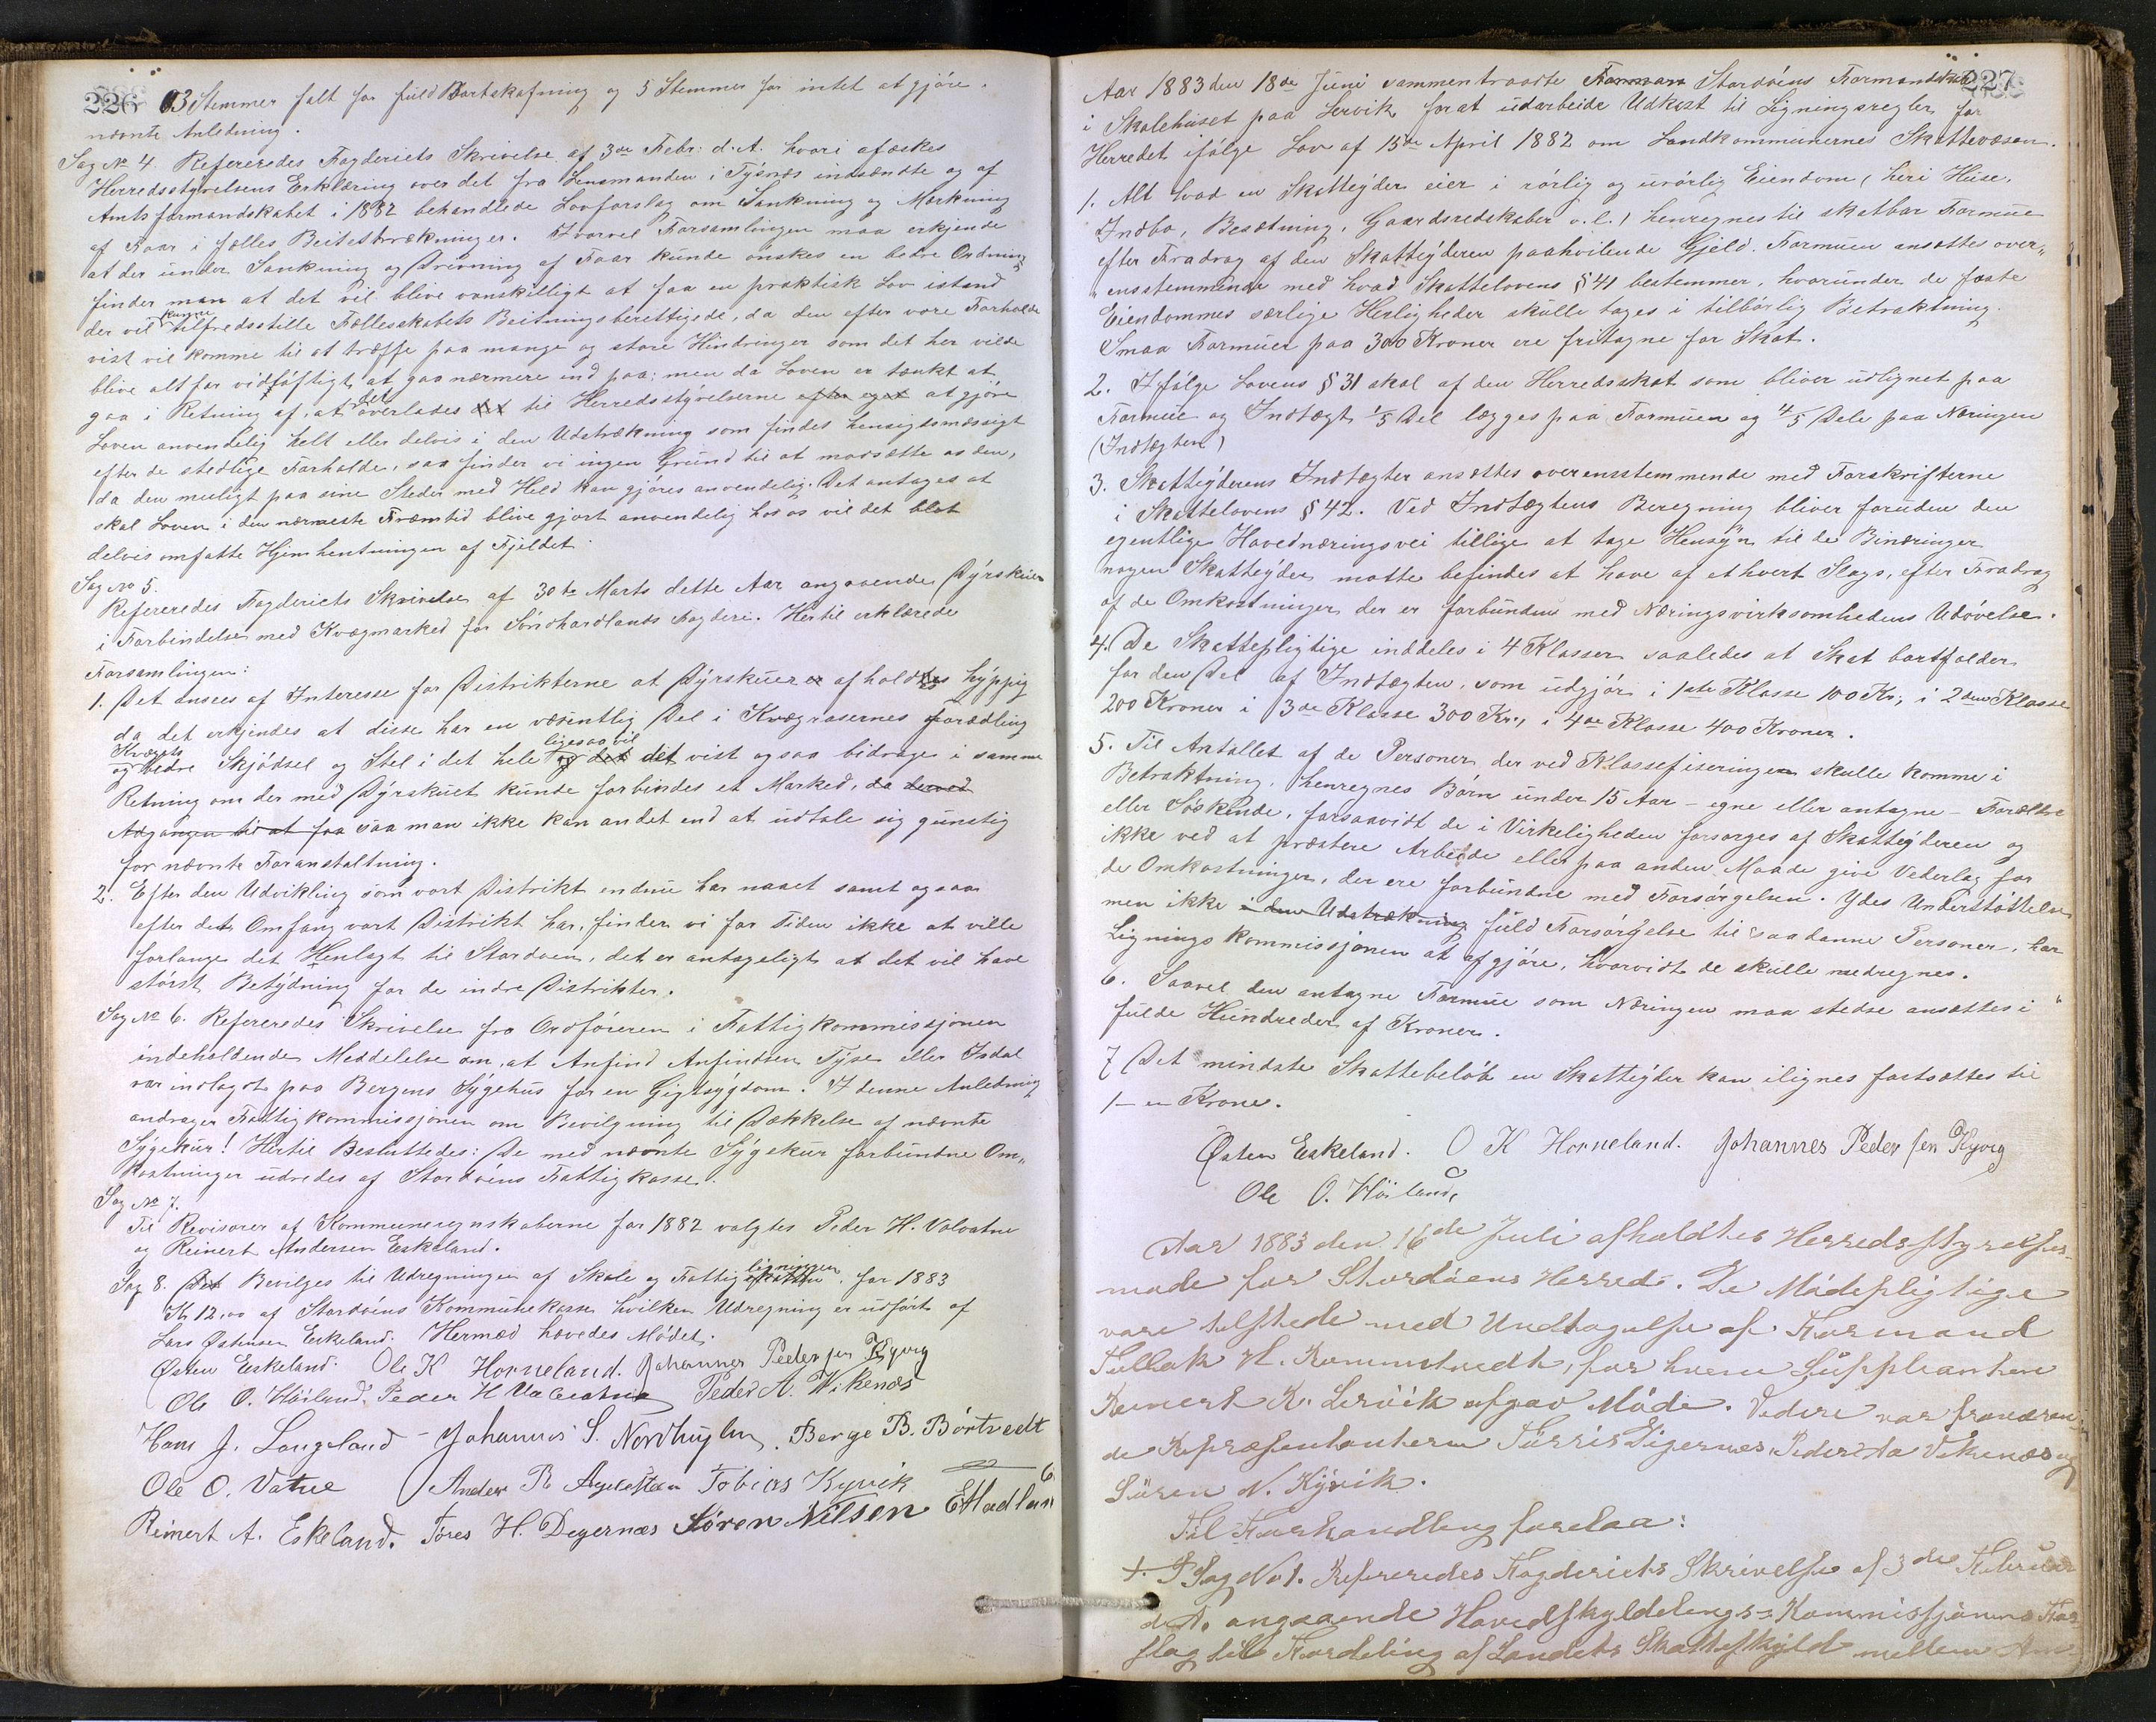 226
13 Stemmer falt for fuld Bortskafning og 5 Stemmer for intet at gjöre.
nævnte Anledning.
Sag No 4. Refereredes Fogderiets Skrivelse af 3de Febr. d. A. hvori afæskes
Herredsstyrelsens Erklæring over det fra Lensmanden i Tysnæs indsendte og af
Amtsformandskabet i 1882 behandlede Lovforslag om Sankning og Mærkning
af Faar i fælles Beitestrækninger. Hvorvel Forsamlingen maa erkjende
at der under Sankning og Drivning af Faar kunde önskes en bedre Ordning
finder man at det vil blive vanskelligt at faa en praktisk Lov istand
der vil kunne tilfredsstille Fællesskabets Beitningsberettigede, da den efter vore Forholde
vist vil komme til at træffe paa mange og store Hindringer som det her vilde
blive altfor vidtlöftigt at gaa nærmere ind paa; men da Loven er tænkt at
gaa i Retning af, at det overlades det til Herredsstyrelserne efter eget at gjöre
Loven anvendelig helt eller delvis i den Udstrækning som findes hensigtsmæssigt
efter de stedlige Forholde, saa finder vi ingen Grund til at modsætte os den,
da den muligt paa sine Steder med Held kan gjöres anvendelig. Det antages at
skal Loven i den nærmeste Fremtid blive gjort anvendelig hos os vil det blot
delvis omfatte Hjemhentningen af Fjeldet.
Sag No 5.
Refereredes Fogderiets Skrivelse af 30te Marts dette Aar angaaende Dyrskuer
i Forbindelse med Kvægmarked for Söndhordlands Fogderi. Hertil erklærede
Forsamlingen:
1. Det ansees af Interesse for Distrikterne at Dyrskuer er afholdtes hyppig
da det erkjendes at disse har en væsentlig Del i Kvægrasernes Forædling
og Kvægets bedre Skjödsel og Stel i det hele og det ligesaa vil det vist ogsaa bidrage i samme
Retning om der med Dyrskuet kunde forbindes et Marked, da derved
Adgangen til at faa saa man ikke kan andet end at udtale sig gunstig
for nævnte Foranstaltning.
2. Efter den Udvikling som vort Distrikt endnu har naaet samt ogsaa
efter det Omfang vort Distrikt har, finder vi for Tiden ikke at ville
forlange det Henlagt til Stordöen, det er antageligt at det vil have
störst Betydning for de indre Distrikter.
Sag No 6. Refereredes Skrivelse fra Ordföreren i Fattigkommissjonen
indeholdende Meddelelse om, at Anfind Anfindsen Tyse eller Isdal
var indlagdt paa Bergens Sygehus for en Gigtsygdom. I denne Anledning
andrager Fattigkommissjonen om Bevilgning til Dækkelse af nævnte
Sygekur! Hertil Besluttedes: De med nævnte Sygekur forbundne Om„
kostninger udredes af Stordöens Fattigkasse.
Sag No 7.
Til Revisorer af Kommuneregnskaberne for 1882 valgtes Peder H. Valvatne
og Reinert Andersen Eskeland.
Sag 8. Det Bevilges til Udregningen af Skole og Fattigskatten ligningen for 1883
Kr 12,00 af Stordöens Kommunekasse hvilken Udregning er udfört af
Lars Östensen Eskeland. Hermed hævedes Mödet.
Östen Eskeland. Ole K Horneland. Johannes Pedersen Kyvig
Ole O. Höiland. Peder H Valvatne Peder A. Vikenæs
Hans J. Langeland - Johannis S. Nordhuglen. Berge B. Börtvedt
Ole O. Vatne Anders R Agdestein Tobias Kyvik
Reinert A. Eskeland. Töres H. Degernæs Sören Nilsen E Hadlan
227
Aar 1883 den 18de Juni sammentraadte Forman Stordöens Formandskab
i Skolehuset paa Lervik for at udarbeide Udkast til Ligningsregler for
Herredet ifölge Lov af 15de April 1882 om Landkommunernes Skattevæsen.
1. Alt hvad en Skatteyder eier i rörlig og urörlig Eiendom (heri Huse,
Indbo, Besætning, Gaardsredskaber o.l.) henregnes til skatbar Formue
efter Fradrag af den Skatteyderen paahvilende Gjeld. Formuen ansættes over„
„ensstemmende med hvad Skattelovens § 41 bestemmer, hvorunder de faste
Eiendommes særlige Herligheder skulle tages i tilbörlig Betraktning.
Smaa Formuer paa 300 Kroner ere fritagne for Skat.
2. Ifölge Lovens § 31 skal af den Herredsskat som bliver udlignet paa
Formue og Indtægt 1/5 Del lægges paa Formuen og 4/5 Dele paa Næringen
(Indtægten)
3. Skatteyderens Indtægter ansættes overensstemmende med Forskrifterne
i Skattelovens § 42. Ved Indtægtens Beregning bliver foruden den
egentlige Hovednæringsvei tillige at tage Hensyn til de Binæringer
nogen Skatteyder maatte befindes at have af ethvert Slags, efter Fradrag
af de Omkostninger der er forbunden med Næringsvirksomhedens Udövelse.
4. De Skattepligtige inddeles i 4 Klasser saaledes at Skat bortfalder
for den Del af Indtægten, som udgjör i 1ste Klasse 100 Kr, i 2den Klasse
200 Kroner i 3de Klasse 300 Kr., i 4de Klasse 400 Kroner.
5. Til Antallet af de Personer der ved Klassefiseringen skulle komme i
Betraktning, henregnes Börn under 15 Aar - egne eller antagne - Forældre
eller Söskende, forsaavidt de i Virkeligheden forsorges af Skatteyderen og
ikke ved at præstere Arbeide eller paa anden Maade give Vederlag for
de Omkostninger, der ere forbundne med Forsörgelsen. Ydes Understöttelse
men ikke i den Udstrækning fuld Forsörgelse til saadanne Personer, har
Ligningskommissjonen at afgjöre, hvorvidt de skulle medregnes.
6. Saavel den antagne Formue som Næringen maa stedse ansættes i
fulde Hundreder af Kroner.
7 Det mindste Skattebelöb en Skatteyder kan ilignes fastsættes til
1 - en Krone.
Östen Eskeland. O K Horneland. Johannes Pedersen Kyvig
Ole O. Höiland.
Aar 1883 den 16de Juli afholdtes Herredsstyrelses-
möde for Stordöens Herred. De Mödepligtige
vare tilstede med Undtagelse af Formand
Tollak H. Rommetvedt, for hvem Suppleanten
Reinert K. Lervik afgav Möde. Videre var fraværen-
de Repræsentanterne Törris Digernes, Peder A. Vikenæs og
Sören N. Kyvik.
Til Forhandling forelaa:
+. Sag No 1. Refereredes Fogderiets Skrivelse af 3die Februar
d. A. angaaende Hovedskyldelings-Kommissjonens For
slag til Fordeling af Landets Skatteskyld mellem Am